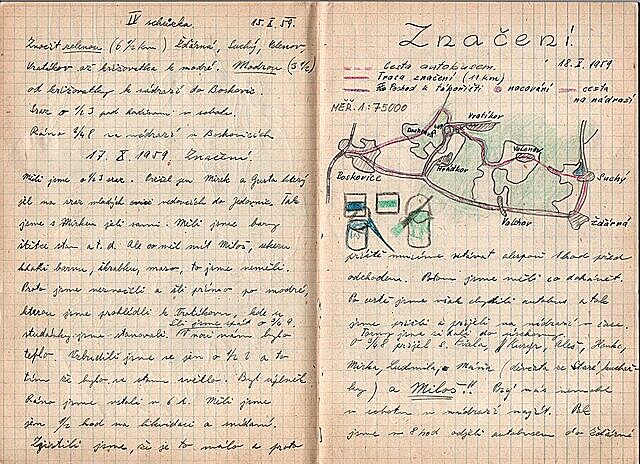 IV schůzka. 15. X. 59.
Značit zelenou (6 ½ km) Ždárná, Suchý, Velenov,
Vratíkov až křižovatka k modré. Modrou (3 ½)
od křižovatky k nádraží do Boskovic.
Sraz o ½ 3 pod hodinami v sobotu.
Ráno ¾8 na nádraží v Boskovicích
17. X. 1959. Značení.
Měli jsme o ½3 sraz. Přišel jen Mirek a Gusta který
jel na sraz mladých vedoucích do Jedovnic. Tak
jsme s Mirkem jeli sami. Měli jsme barvy
štětce stan a t. d. Ale co měl mít Miloš, sekeru
hnědou barvu, škrabku, maso, to jsme neměli.
Proto jsme neznačili a šli přímo po modré,
kterou jsme prohlédli k Vratíkovu, kde u
Šli jsme spát o ¾ 9.
studánky jsme stanovali. V noci nám bylo
teplo. Vzbudili jsme se jen o ½ 2 a to
tím že bylo ve stanu světlo. Byl úplněk
Ráno jsme vstali v 6 h. Měli jsme
jen ½ hod na likvidaci a snídani.
Zjistili jsme, že je to málo a proto
Značení.
Cesta autobusem 18. X. 1959
Trasa značení (11 km)
Pochod k tábořišti nocování cesta
na nádraží
MĚŘ. 1:75000
Vratíkov
Boskovice
Hrádkov
Velenov
Suchý
Valchov
Ždárná
příště musíme vstávat alespoň 1 hod před
odchodem. Potom jsme měli co dohánět.
Po cestě jsme však chytili autobus a tak
jsme přišli a přijeli na nádraží v čas.
o ¾8 přijel s. Fiala, Aleš, Hanka,
Mirka, Ludmila, Marie (děvčata ze Staré
) a Miloš!! Prý nás nemohl
v sobotu v nádraží najít.
jsme v 8 hod odjeli autobusem do Ždárné